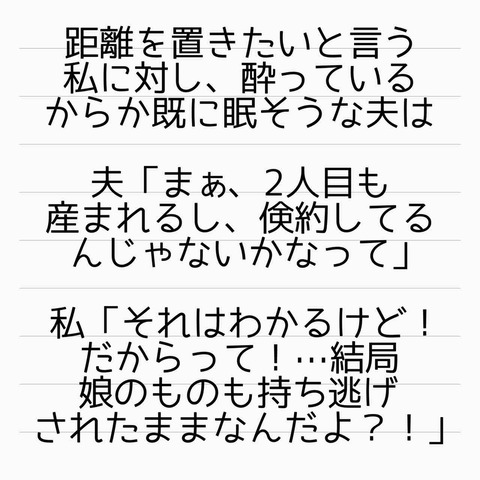 距離を置きたいと言う
私に対し、酔っている
からか既に眠そうな夫は
夫「まぁ、2人目も
産まれるし、倹約してる
んじゃないかなって」
私「それはわかるけど！
だからって！…結局
娘のものも持ち逃げ
されたままなんだよ？！」